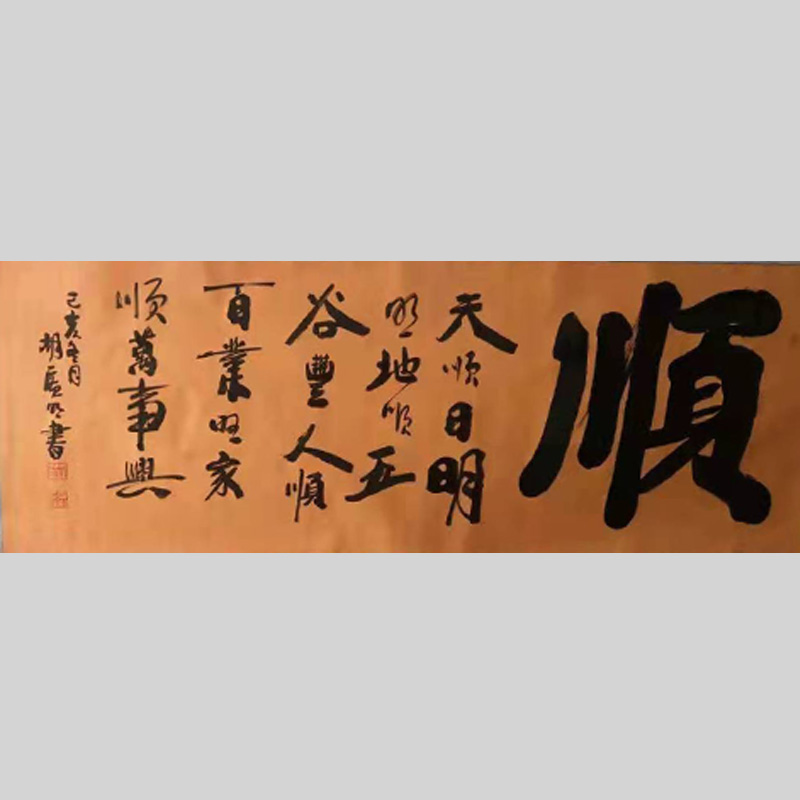 順
天順日明
明地順五
谷豐人順
百業旺家
順萬事興
己亥冬月
胡廣明書